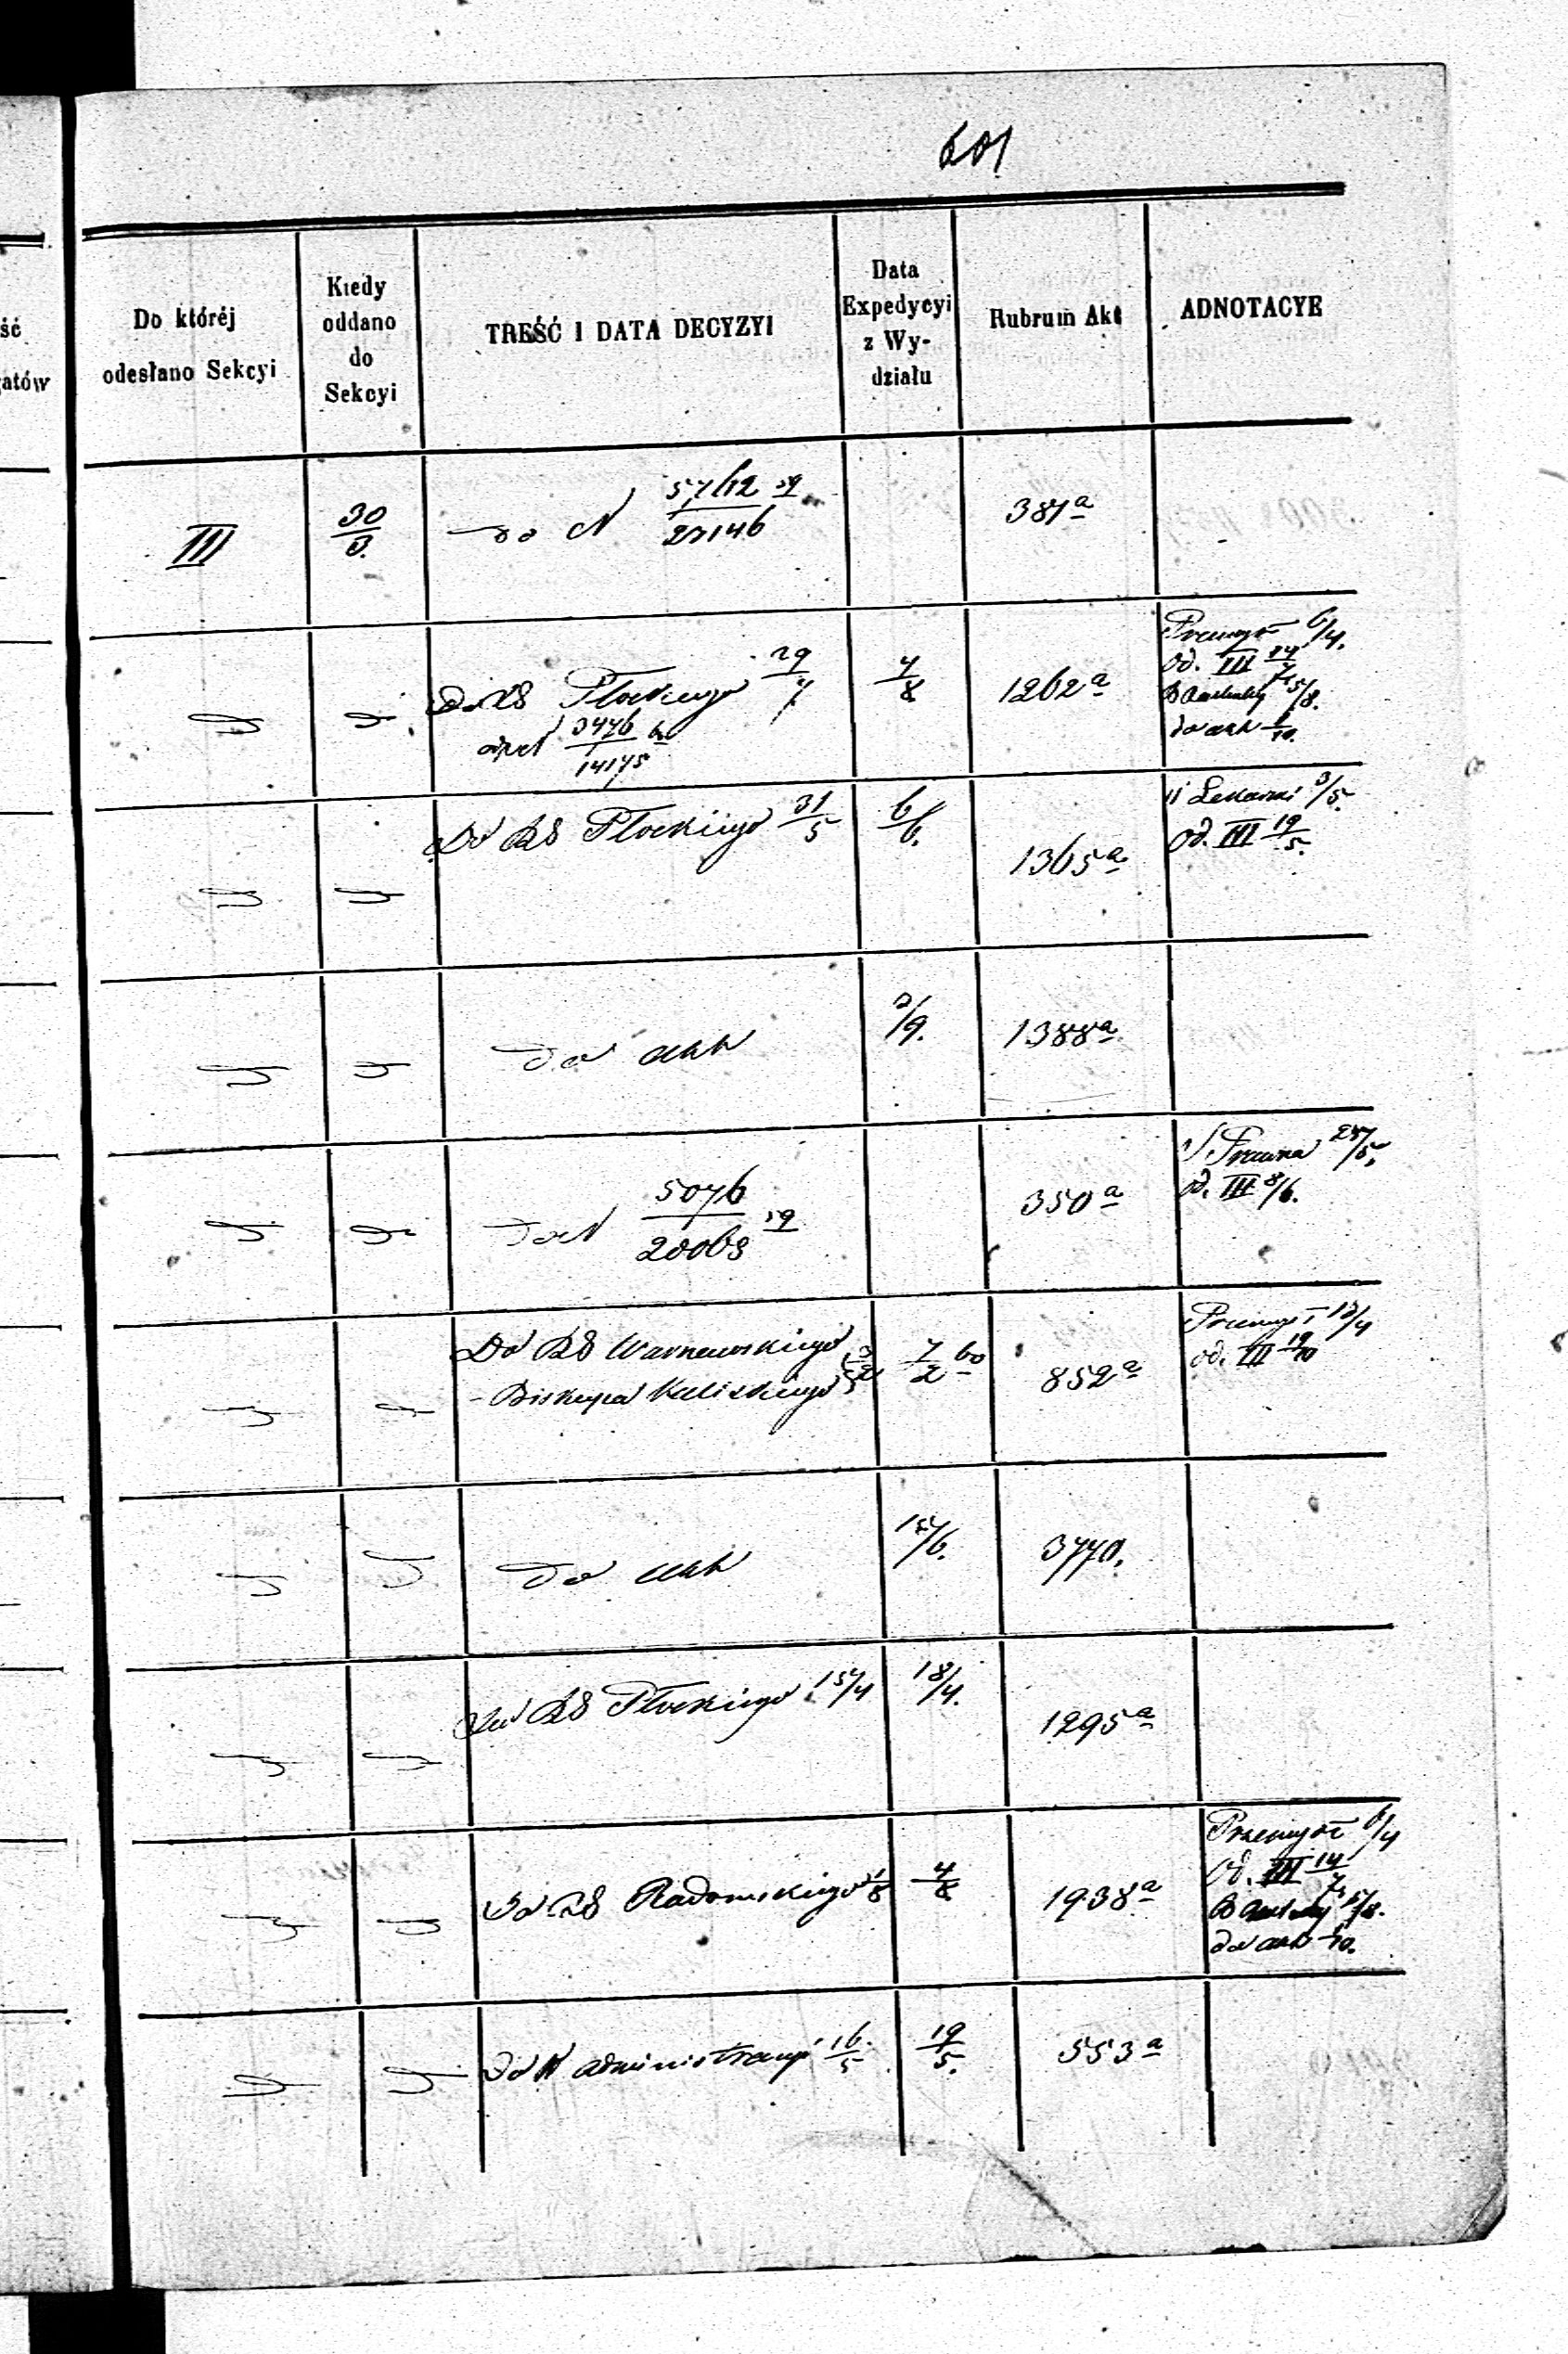 601
ść
gatów
Do któréj
odesłano Sekcyi
Kiedy
oddano
do
Sekcyi
TREŚĆ I DATA DECYZYI
Data
Expedycyi
z Wy-
działu
Rubrum Akt
ADNOTACYE
III 30/3 do N 5762/27146 59 381a
Do RG Płockiego 29/7 4/8 1262a
do N 3476/14175 60
Przemysł 6/4.
od. III 14/7
5/8.
do akt /10.
Do RG Płockiego 31/5 6/6. 1365a
Lekarski 3/5.
od. III 19/5.
do akt 2/9. 1388a
do N 5076/20063 59 350a
Prawna 25/5.
od. III 8/6.
Do RG Warszawskiego 3/2 7/2 60 852a
- Biskupa Kaliskiego
Przemysł 13/4
od. III 19/10
do akt 15/6. 3770.
Do RG Płockiego 15/4 18/4. 1295a
Do RG Radomskiego 1/8 4/8 1938a
Przemysł 6/4
od. III 14/7
5/8.
do akt /10.
Do N administracyi 16/5 19/5. 553a